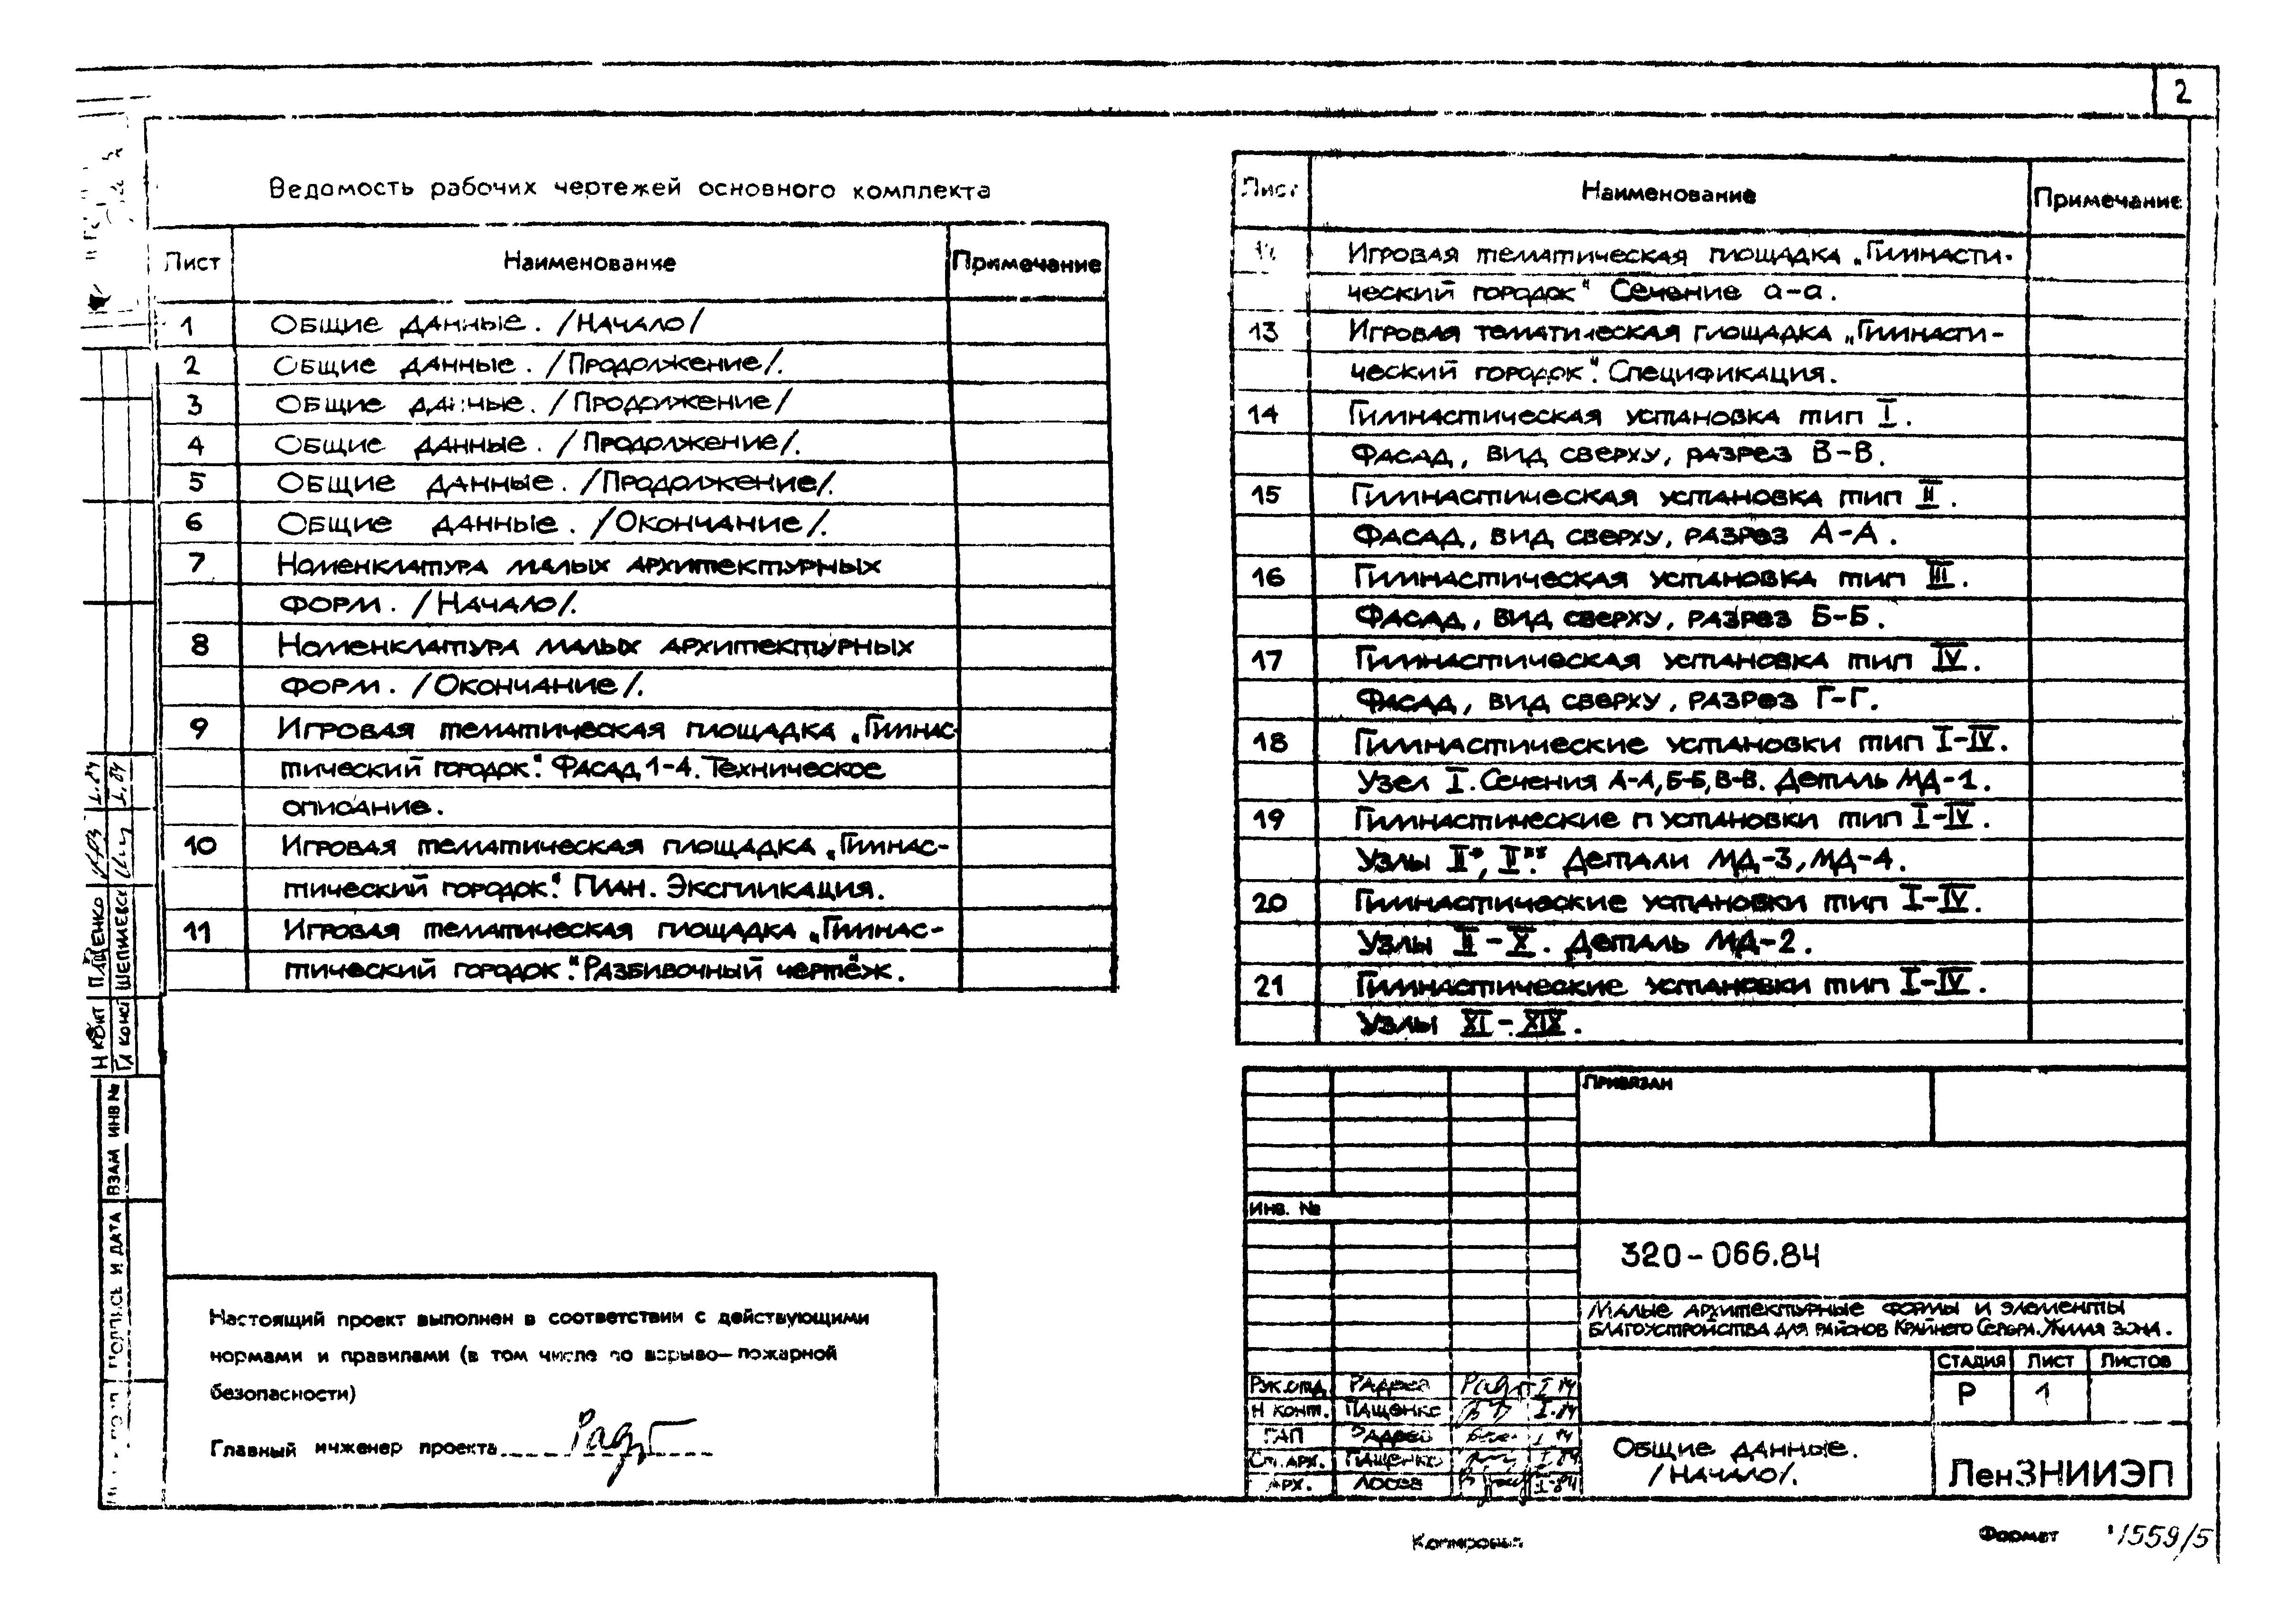 2
Ведомость рабочих чертежей основного комплекта
Лист Наименование Примечание
1 Общие данные. /Начало/
2 Общие данные. /Продолжение/.
3 Общие данные. /Продолжение/
4 Общие данные. /Продолжение/.
5 Общие данные. /Продолжение/.
6 Общие данные. /Окончание/.
7 Номенклатура малых архитектурных
форм. /Начало/.
8 Номенклатура малых архитектурных
форм. /Окончание/.
9 Игровая тематическая площадка „Гимнас
тический городок". Фасад 1-4. Техническое
описание.
10 Игровая тематическая площадка „Гимнас-
тический городок". План. Экспликация.
11 Игровая тематическая площадка „Гимнас-
тический городок". Разбивочный чертёж.
Лист Наименование Примечание
Игровая тематическая площадка „Гимнасти-
ческий городок" Сечение а-а.
13 Игровая тематическая площадка „Гимнасти-
ческий городок". Спецификация.
14 Гимнастическая установка тип I.
Фасад, вид сверху, разрез В-В.
15 Гимнастическая установка тип II.
Фасад, вид сверху, разрез А-А.
16 Гимнастическая установка тип III.
Фасад, вид сверху, разрез Б-Б.
17 Гимнастическая установка тип IV.
Фасад, вид сверху, разрез Г-Г.
18 Гимнастические установки тип I-IV.
Узел I. Сечения А-А, Б-Б, В-В. Деталь МД-1.
19 Гимнастические п установки тип I-IV.
Узлы II*, II**. Детали МД-3, МД-4.
20 Гимнастические установки тип I-IV.
Узлы II-X. Деталь МД-2.
21 Гимнастические установки тип I-IV.
Узлы XI-XIX.
Н конт Пащенко
Гл конс Шепшевск
Взам инв №
Подпись и дата
Настоящий проект выполнен в соответствии с действующими
нормами и правилами (в том числе по взрыво-пожарной
безопасности)
Главный инженер проекта
Привязан
Инв. №
320-066.84
Малые архитектурные формы и элементы
благоустройства для районов Крайнего Севера. Жилая зона.
Стадия Лист Листов
Р 1
Рук.отд. Радрев
Н конт. Пащенко I.84
ГАП Радрев
Ст.арх. Пащенко I.84
Арх. Лосев I-84
Общие данные.
/Начало/.
ЛенЗНИИЭП
Копировал
Формат